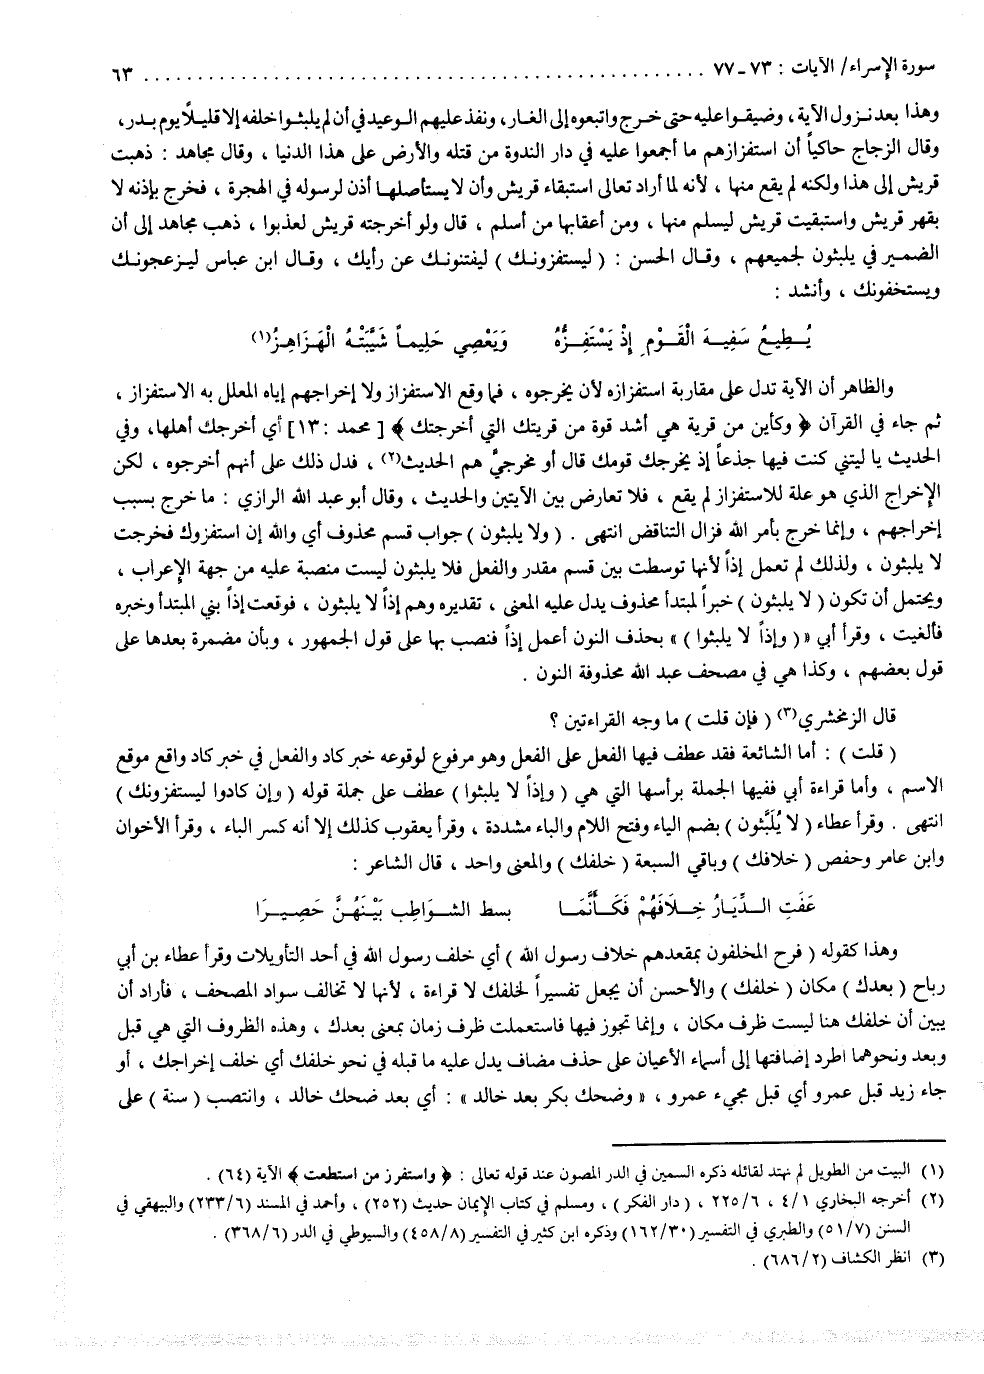 سورة الإسراء/ الآيات : ٧٣ ـ ٧٧ ........................................................ ٦٣
وهذا بعد نـزول الآية ، وضيقـوا عليه حتى خـرج واتبعوه إلى الغـار، ونفذ عليهم الـوعيد في أن لم يلبثـوا خلفه إلا قليـلاً يوم بـدر،
وقال الزجاج حاكياً أن استفزازهم ما أجمعوا عليه في دار الندوة من قتله والأرض على هذا الدنيا ، وقال مجاهد : ذهبت
قريش إلى هذا ولكنه لم يقع منها ، لأنه لما أراد تعالى استبقاء قريش وأن لا يستأصلهـا أذن لرسوله في الهجرة ، فخرج بإذنه لا
بقهر قريش واستبقيت قريش ليسلم منهـا ، ومن أعقابها من أسلم ، قال ولو أخرجته قريش لعذبوا ، ذهب مجاهد إلى أن
الضمير في يلبثون لجميعهم ، وقـال الحسن : ( ليستفزونـك ) ليفتنونـك عن رأيك ، وقـال ابن عباس ليـزعجونـك
ويستخفونك ، وأنشد :
يُــطِيـعُ سَفِيــهَ الْقَــوْمِ إِذْ يَسْتَفِــزُّهُ وَيَعْصِي حَلِيمـاً شَيَّبَتْـهُ الْهَـزَاهِـزُ(١)
والظاهر أن الآية تدل على مقاربة استفزازه لأن يخرجوه ، فما وقع الاستفزاز ولا إخراجهم إياه المعلل به الاستفزاز ،
ثم جاء في القرآن ﴿ وكأين من قرية هي أشد قوة من قريتك التي أخرجتك ﴾ [ محمد : ١٣] أي أخرجك أهلها، وفي
الحديث يا ليتني كنت فيها جذعاً إذ يخرجك قومك قال أو مخرجيَّ هم الحديث(٢) ، فدل ذلك على أنهم أخرجوه ، لكن
الإخراج الذي هو علة للاستفزاز لم يقع ، فلا تعارض بين الآيتين والحديث ، وقال أبو عبد الله الرازي : ما خرج بسبب
إخراجهم ، وإنما خرج بأمر الله فزال التناقض انتهى . ( ولا يلبثون ) جواب قسم محذوف أي والله إن استفزوك فخرجت
لا يلبثون ، ولذلك لم تعمل إذاً لأنها توسطت بين قسم مقدر والفعل فلا يلبثون ليست منصبة عليه من جهة الإعراب ،
ويحتمل أن تكون ( لا يلبثون ) خبراً لمبتدأ محذوف يدل عليه المعنى ، تقديره وهم إذاً لا يلبثون ، فوقعت إذاً بني المبتدأ وخبره
فألغيت ، وقرأ أبي « ( وإذاً لا يلبثوا ) » بحذف النون أعمل إذاً فنصب بها على قول الجمهور ، وبأن مضمرة بعدها على
قول بعضهم ، وكذا هي في مصحف عبد الله محذوفة النون .
قال الزمخشري(٣) ( فإن قلت ) ما وجه القراءتين ؟
( قلت ) : أما الشائعة فقد عطف فيها الفعل على الفعل وهو مرفوع لوقوعه خبر كاد والفعل في خبر كاد واقع موقع
الاسم ، وأما قراءة أبي ففيها الجملة برأسها التي هي ( وإذاً لا يلبثوا ) عطف على جملة قوله ( وإن كادوا ليستفزونك )
انتهى . وقرأ عطاء ( لا يُلَبَّثون ) بضم الياء وفتح اللام والباء مشددة ، وقرأ يعقوب كذلك إلا أنه كسر الباء ، وقرأ الأخوان
وابن عامر وحفص ( خلافك ) وباقي السبعة ( خلفك ) والمعنى واحد ، قال الشاعر :
عَفَتِ الـدِّيَـارُ خِـلَافَهُمْ فَكَـأَنَّمَـا بسط الشـواطِب بَيْنَهُـنَّ حَصِيـرَا
وهذا كقوله ( فرح المخلفون بمقعدهم خلاف رسول الله ) أي خلف رسول الله في أحد التأويلات وقرأ عطاء بن أبي
رباح ( بعدك ) مكان ( خلفك ) والأحسن أن يجعل تفسيراً لخلفك لا قراءة ، لأنها لا تخالف سواد المصحف ، فأراد أن
يبين أن خلفك هنا ليست ظرف مكان ، وإنما تجوز فيها فاستعملت ظرف زمان بمعنى بعدك ، وهذه الظروف التي هي قبل
وبعد ونحوهما اطرد إضافتها إلى أسماء الأعيان على حذف مضاف يدل عليه ما قبله في نحو خلفك أي خلف إخراجك ، أو
جاء زيد قبل عمرو أي قبل مجيء عمرو ، « وضحك بكر بعد خالد » : أي بعد ضحك خالد ، وانتصب ( سنة ) على
(١) البيت من الطويل لم نهتد لقائله ذكره السمين في الدر المصون عند قوله تعالى : ﴿ واستفرز من استطعت ﴾ الآية (٦٤) .
(٢) أخرجه البخاري ٤/١ ، ٢٢٥/٦ ، ( دار الفكر ) ، ومسلم في كتاب الإيمان حديث (٢٥٢) ، وأحمد في المسند (٢٣٣/٦) والبيهقي في
السنن (٥١/٧) والطبري في التفسير (١٦٢/٣٠) وذكره ابن كثير في التفسير (٤٥٨/٨) والسيوطي في الدر (٣٦٨/٦) .
(٣) انظر الكشاف (٦٨٦/٢) .